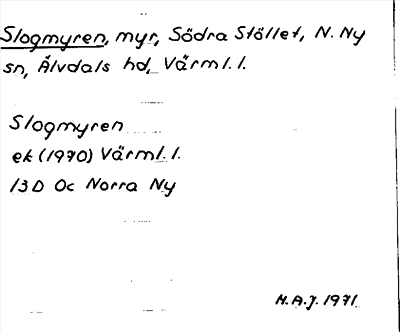 Slogmyren, myr, Södra Stöllet, N. Ny
sn, Älvdals hd, Värml. l.
Slogmyren
ek (1970) Värml. l.
13D 0c Norra Ny
H.A.J. 1971